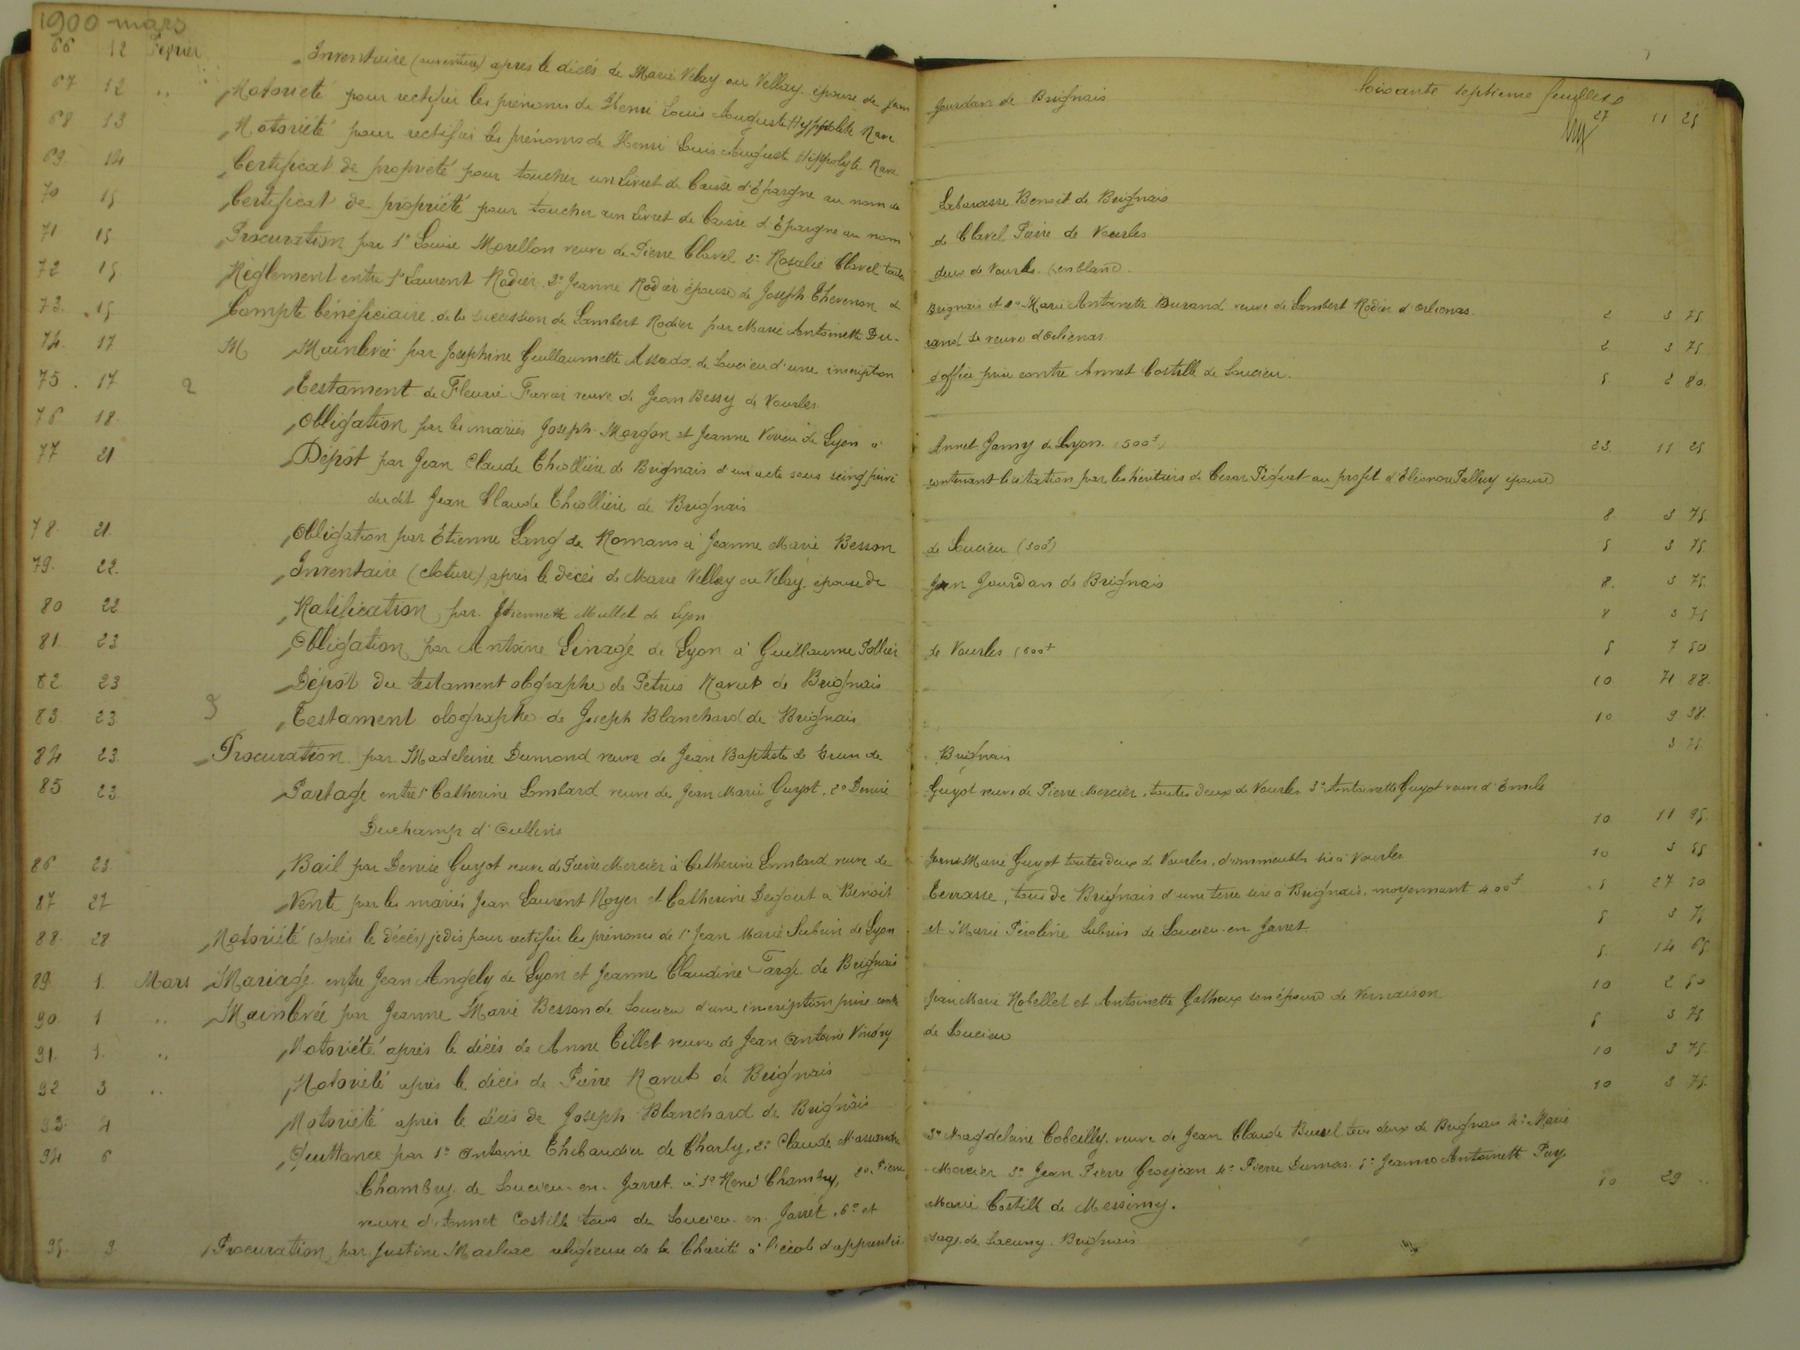 1900 mars
Soixante septième feuillet
66 12 Février Inventaire (ouverture) après le décès de Marie Velay ou Vellay, épouse de Jean Jourdan de Brignais 27 11 25
67 12 " Notoriété pour rectifier les prénoms de Henri Louis Auguste Hyppolite
68 13 Notoriété pour rectifier les prénoms de Henri Louis Auguste Hippolyte
69 14 Certificat de propriété pour toucher un Livret de Caisse d'Épargne au nom de Benoit de Brignais
70 15 Certificat de propriété pour toucher un Livret de Caisse d'Épargne au nom de Clavel Pierre de Vourles
71 15 Procuration par 1° Louise Morellon veuve de Pierre Clavel 2° Rosalie Clavel toutes deux de Vourles (en blanc)
72 15 Règlement entre 1° Laurent Rodier 2° Jeanne Rodier épouse de Joseph Thevenon de Brignais et 3° Marie Antoinette Durand veuve de Lambert Rodier d'Orlienas 2 3 75
73 15 Compte bénéficiaire de la succession de Lambert Rodier par Marie Antoinette Du- rand sa veuve d'Orlienas 2 3 75
74 17 M Mainlevée par Josephine Guillaumette Assada de Soucieu d'une inscription d'office prise contre Annet Costille de Soucieu. 5 2 80
75 17 2 Testament de Fleurie veuve de Jean Bessy de Vourles
76 18 Obligation par les mariés Joseph Morgon et Jeanne de Lyon à Annet Jamy de Lyon (500f) 23 11 25
77 21 Dépôt par Jean Claude Thiollière de Brignais d'un acte sous seing privé contenant licitation par les héritiers de César au profit d'Eléonore épouse
dudit Jean Claude Thiollière de Brignais 8 3 75
78 21 Obligation par Étienne Lang de Romans à Jeanne Marie Besson de Soucieu (300f) 5 3 75
79 22 Inventaire (cloture) après le décès de Marie Vellay ou Velay, épouse de Jean Jourdan de Brignais 8 3 75
80 22 Ratification par Etiennette Mullet de Lyon 8 3 75
81 23 Obligation par Antoine Linage de Lyon à Guillaume Pollier de Vourles (800f 5 7 50
82 23 Dépôt du testament olographe de Petrus Ravut de Brignais 10 71 88
83 23 3 Testament olographe de Joseph Blanchard de Brignais 10 9 38
84 23 Procuration par Madeleine Dumond veuve de Jean Baptiste de Brignais 3 75
85 23 Partage entre 1° Catherine Lombard veuve de Jean Marie Guyot, 2° Denise Guyot veuve de Pierre Mercier, toutes deux de Vourles 3° Antoinette Guyot veuve d'Emile
Duchamp d'Oullins 10 11 95
86 23 Bail par Denise Guyot veuve de Pierre Mercier à Catherine Lombard veuve de Jean Marie Guyot toutes deux de Vourles, d'immeubles sis à Vourles 10 3 55
87 27 Vente par les mariés Jean Laurent Royer et Catherine Degout à Benoit Terrasse, tous de Brignais d'une terre sise à Brignais, moyennant 400f 5 27 50
88 28 Notoriété (après le décès) jedis pour rectifier les prénoms de 1° Jean Marie Subrin de Lyon et Marie Subrin de Soucieu en Jarret 5 3 75
89 1 Mars Mariage entre Jean Angely de Lyon et Jeanne Claudine Farge de Brignais 5 14 65
90 1 " Mainlevée par Jeanne Marie Besson de Soucieu d'une inscription prise contre Jean Marie Robellet et Antoinette son épouse de Vernaison 10 2 50
91 1 " Notoriété après le décès de Anne Tillet veuve de Jean Antoine Vindry de Soucieu 5 3 75
92 3 " Notoriété après le décès de Pierre Ravut de Brignais 10 3 75
93 4 Notoriété après le décès de Joseph Blanchard de Brignais 10 3 75
94 6 Quittance par 1° Antoine Thibaudier de Charly, 2° Claude 3° Magdelaine veuve de Jean Claude tous deux de Brignais 4° Marie
Chambry de Soucieu-en-Jarret à 1° René Chambry, 2° Pierre Mercier 3° Jean Pierre Grosjean 4° Pierre Dumas 5° Jeanne Antoinette
veuve d'Annet Costille tous de Soucieu en Jarret, 6° et Marie Costille de Messimy. 10 29
95 9 Procuration par Justine religieuse de la Charité à l'école d'apprentis- sage de Brignais